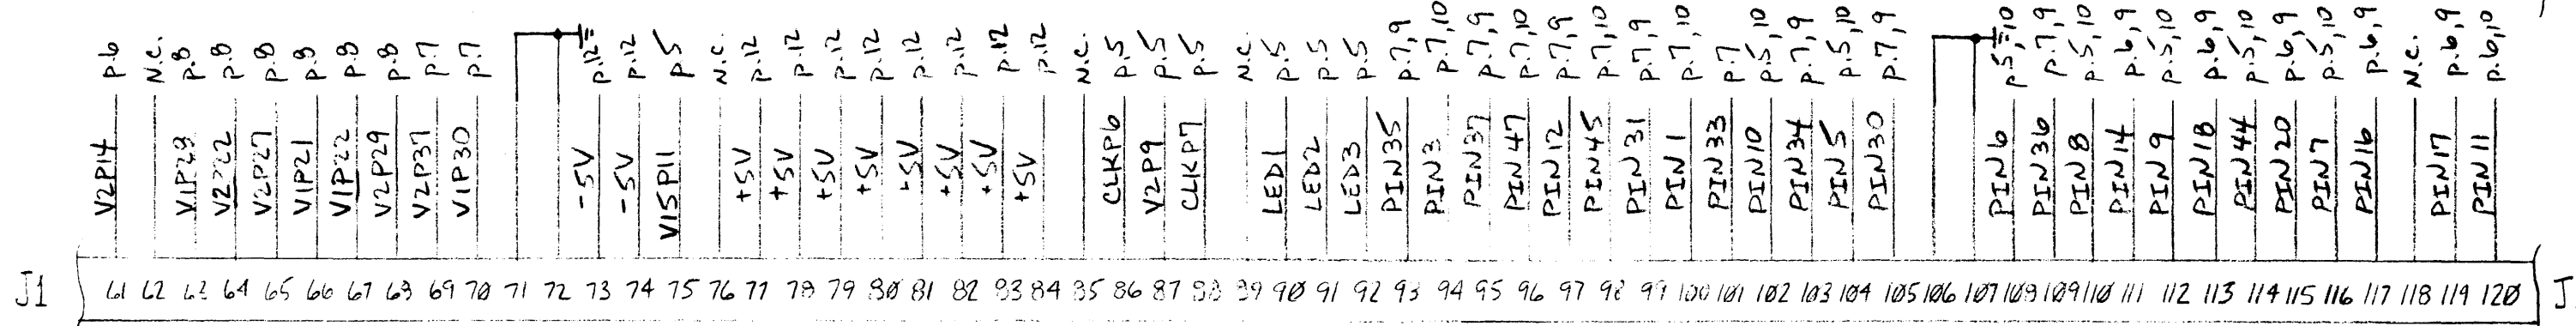 p.6 N.C. p.8 p.8 p.8 p.8 p.8 p.8 p.7 p.7 p.12 p.12 p.5 N.C. p.12 p.12 p.12 p.12 p.12 p.12 p.12 p.12 N.C. p.5 p.5 p.5 N.C. p.5 p.5 p.5 p.7,9 p.7,10 p.7,9 p.7,10 p.7,9 p.7,10 p.7,9 p.7,10 p.7 p.5,10 p.7,9 p.5,10 p.7,9 p.5,10 p.7,9 p.5,10 p.6,9 p.5,10 p.6,9 p.5,10 p.6,9 p.5,10 p.6,9 N.C. p.6,9 p.6,10
V2P14 V2P22 V2P27 V1P21 V1P22 V2P29 V2P37 V1P30 -5V -5V V15P11 +5V +5V +5V +5V +5V +5V +5V +5V CLKP6 V2P9 CLKP7 LED1 LED2 LED3 PIN35 PIN3 PIN37 PIN47 PIN12 PIN45 PIN31 PIN1 PIN33 PIN10 PIN34 PIN5 PIN30 PIN6 PIN36 PIN8 PIN14 PIN9 PIN18 PIN44 PIN20 PIN7 PIN16 PIN17 PIN11
J1 61 62 63 64 65 66 67 68 69 70 71 72 73 74 75 76 77 78 79 80 81 82 83 84 85 86 87 88 89 90 91 92 93 94 95 96 97 98 99 100 101 102 103 104 105 106 107 108 109 110 111 112 113 114 115 116 117 118 119 120 J